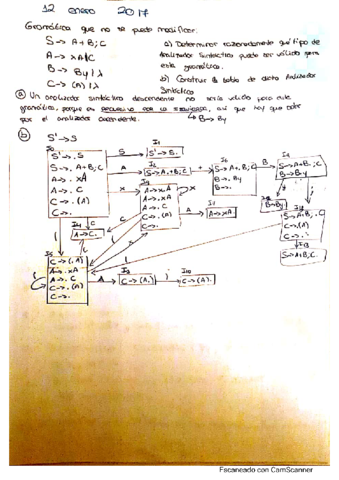 12 enero 2017
Gramática que no se puede modificar:
S -> A+B;C
A -> xA|C
B -> By|λ
C -> (A)|λ
a) Determinar razonadamente qué tipo de analizador sintáctico puede ser válido para esta gramática.
b) Construir la tabla de dicho Analizador Sintáctico
a) Un analizador sintáctico descendente no sería válido para esta
gramática, porque es recursiva por la izquierda, así que hay que optar
por el analizador ascendente. B->By
b) S'->S
I0
S'->.S
S->.A+B;C
A->.xA
A->.C
C->.(A)
C->.
S
I1
S'->S.
A
I2
S->A.+B;C
+
S->A+.B;C
B->.By
B->.
B
S->A+B.;C
B->B.y
x
A->x.A
A->.xA
A->.C
C->.(A)
C->.
A
A->xA.
C
I4
A->C.
y
B->By.
;
S->A+B;.C
C->.(A)
C->.
C
S->A+B;C.
(
I5
C->(.A)
A->.xA
A->.C
C->.(A)
C->.
A
C->(A.)
)
I10
C->(A).
Escaneado con CamScanner